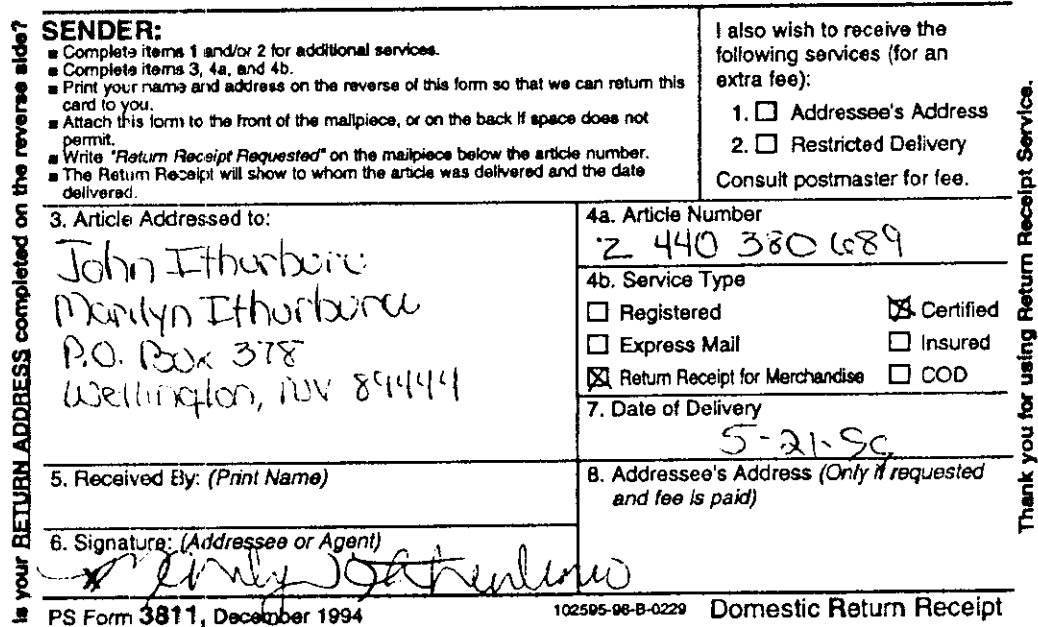 Is your RETURN ADDRESS completed on the reverse side?
SENDER:
■ Complete items 1 and/or 2 for additional services.
■ Complete items 3, 4a, and 4b.
■ Print your name and address on the reverse of this form so that we can return this
card to you.
■ Attach this form to the front of the mailpiece, or on the back if space does not
permit.
■ Write "Return Receipt Requested" on the mailpiece below the article number.
■ The Return Receipt will show to whom the article was delivered and the date
delivered.
I also wish to receive the
following services (for an
extra fee):
1. ☐ Addressee's Address
2. ☐ Restricted Delivery
Consult postmaster for fee.
3. Article Addressed to:
John
Marilyn
P.O. Box 378
Wellington, NV 89444
4a. Article Number
Z 440 380 689
4b. Service Type
☐ Registered ☒ Certified
☐ Express Mail ☐ Insured
☒ Return Receipt for Merchandise ☐ COD
7. Date of Delivery
5-21-
5. Received By: (Print Name)
8. Addressee's Address (Only if requested
and fee is paid)
6. Signature: (Addressee or Agent)
PS Form 3811, December 1994
102595-98-B-0229 Domestic Return Receipt
Thank you for using Return Receipt Service.